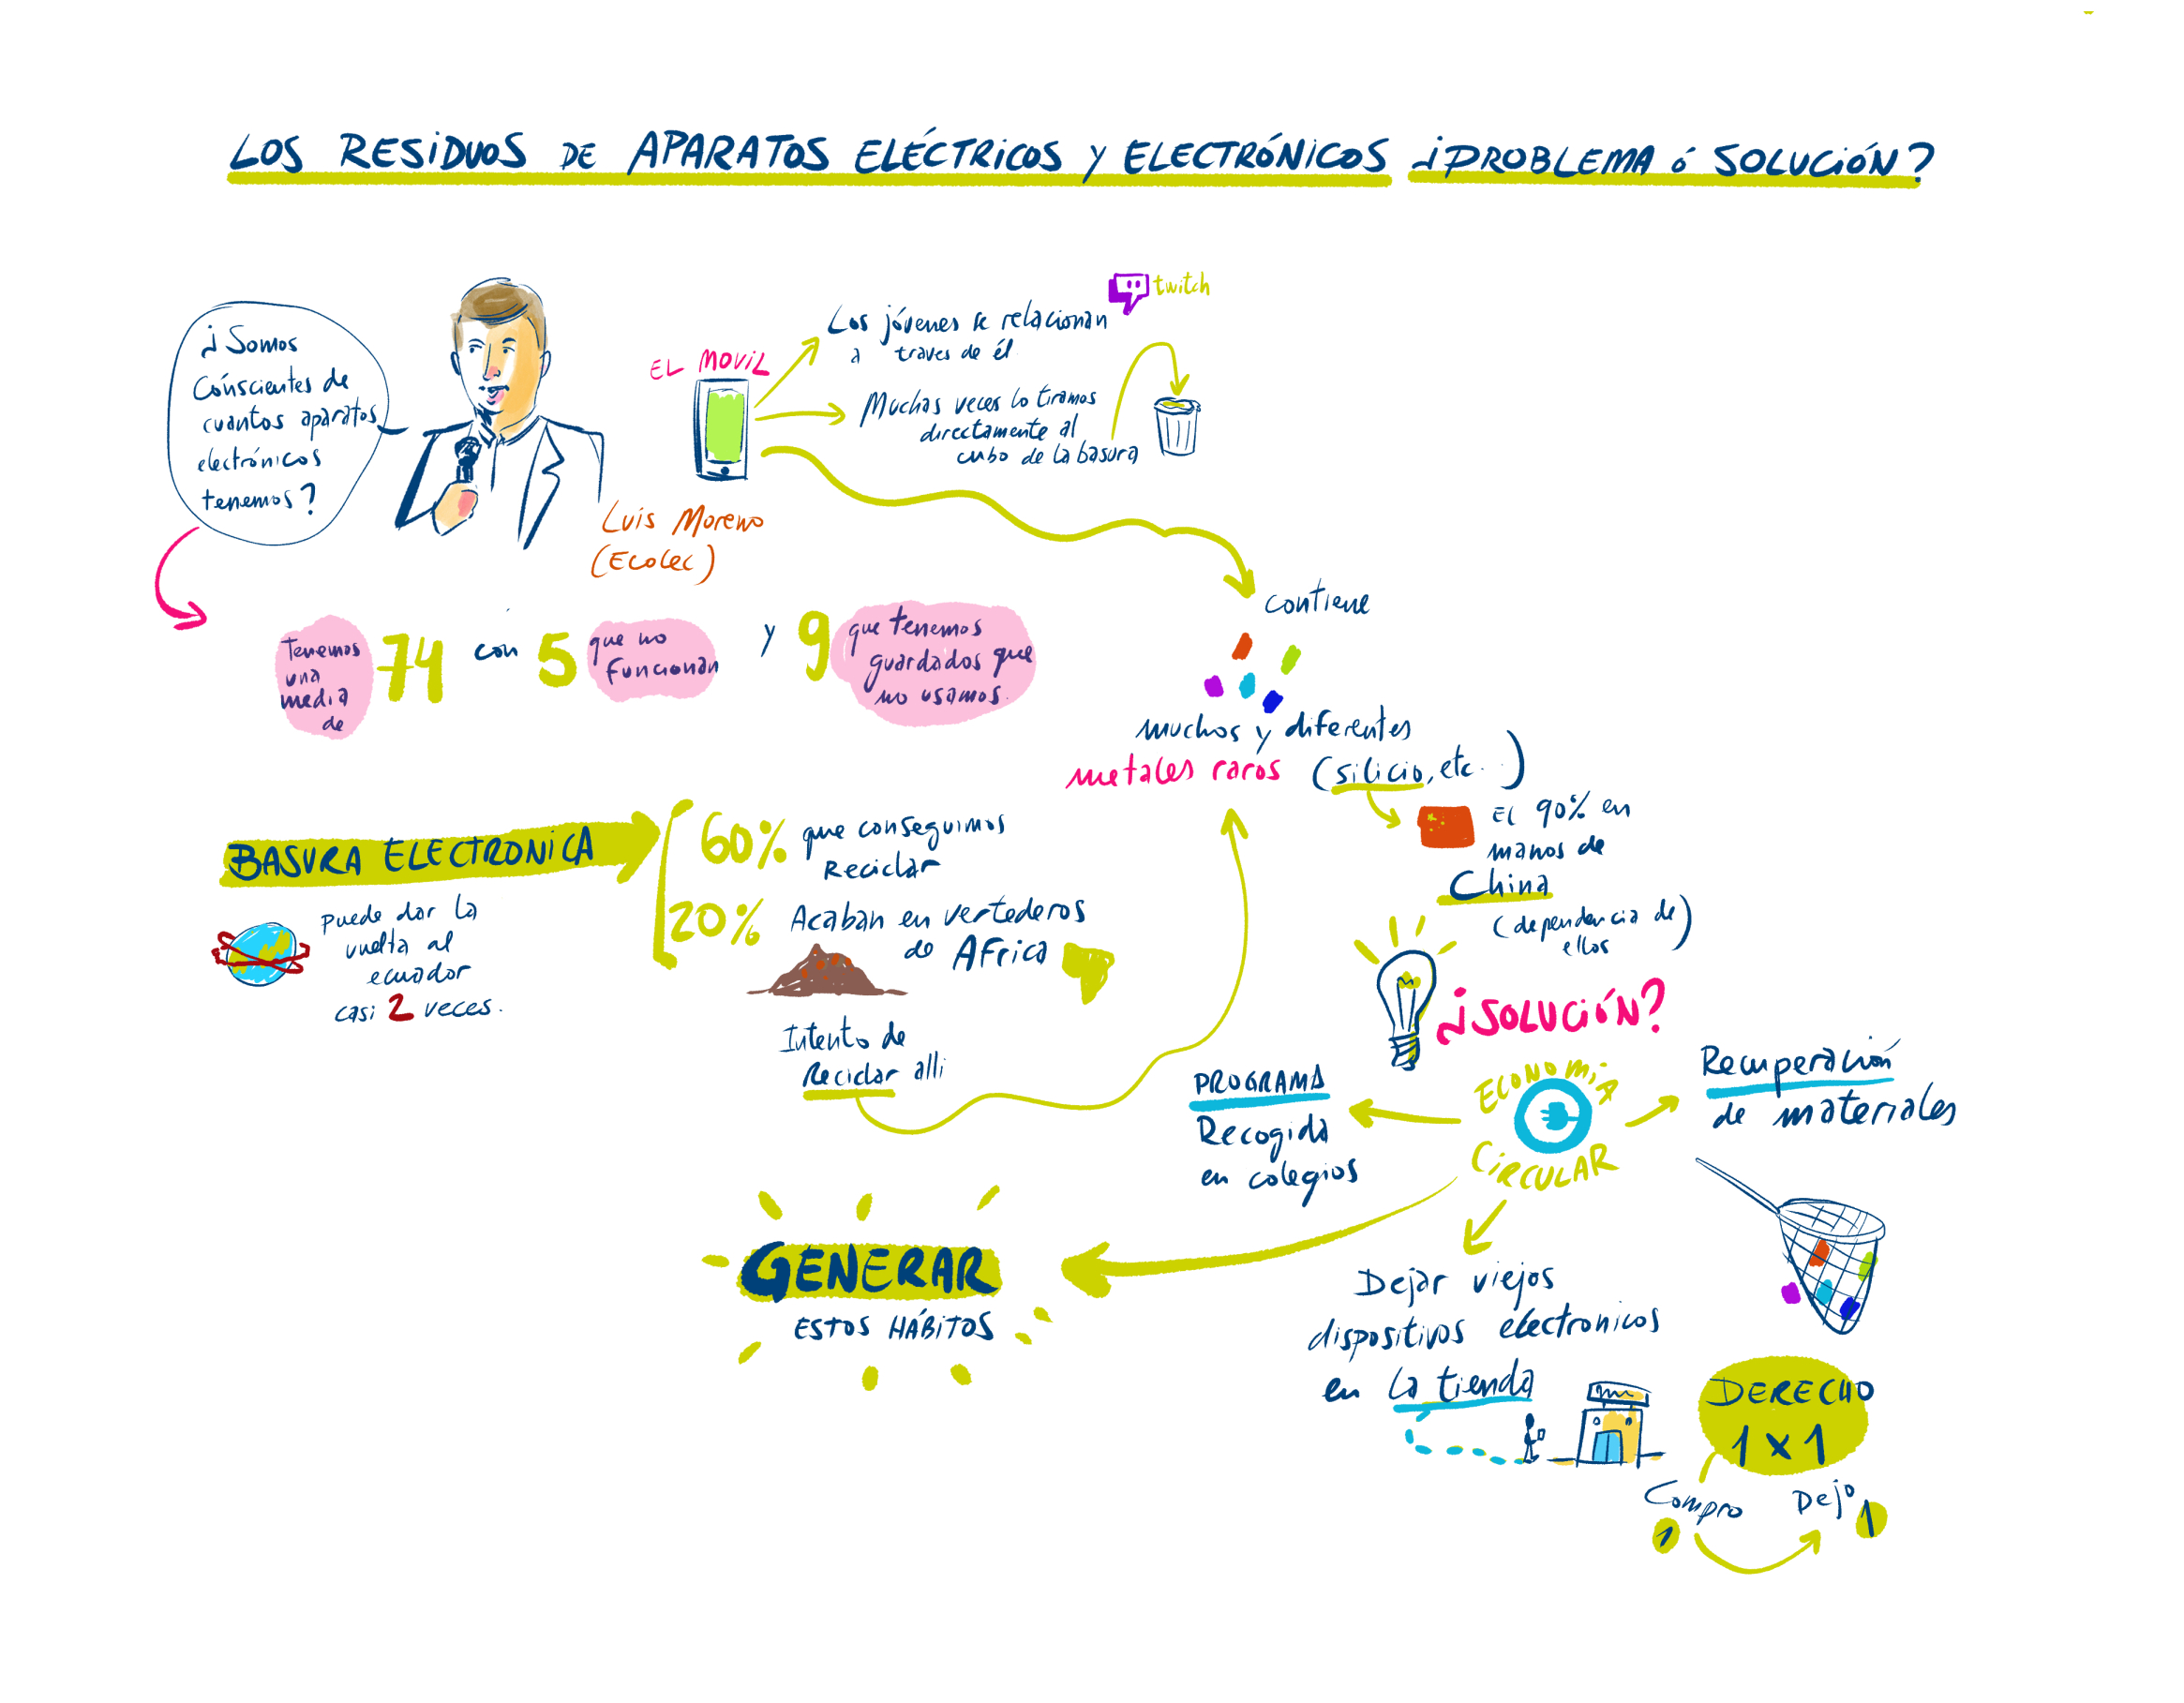 LOS RESIDUOS DE APARATOS ELÉCTRICOS Y ELECTRÓNICOS ¿PROBLEMA ó SOLUCIÓN?
¿Somos
Cónscientes de
cuantos aparatos
electrónicos
tenemos?
Luis Moreno
(Ecolec)
EL MOVIL
Los jóvenes se relacionan
a traves de él
twitch
Muchas veces lo tiramos
directamente al
cubo de la basura
Tenemos
una
media
de
74 con 5
que no
funcionan
y 9
que tenemos
guardados que
no usamos.
contiene
muchos y diferentes
metales raros (silicio, etc...)
El 90% en
manos de
China
(dependencia de
ellos)
BASURA ELECTRONICA
puede dar la
vuelta al
ecuador
casi 2 veces.
60% que conseguimos
Reciclar
20% Acaban en vertederos
de Africa
Intento de
Reciclar alli
¿SOLUCIÓN?
ECONOMIA
CIRCULAR
PROGRAMA
Recogida
en colegios
Recuperación
de materiales
GENERAR
ESTOS HÁBITOS
Dejar viejos
dispositivos electronicos
en la tienda
DERECHO
1x1
Compro
1
Dejo
1